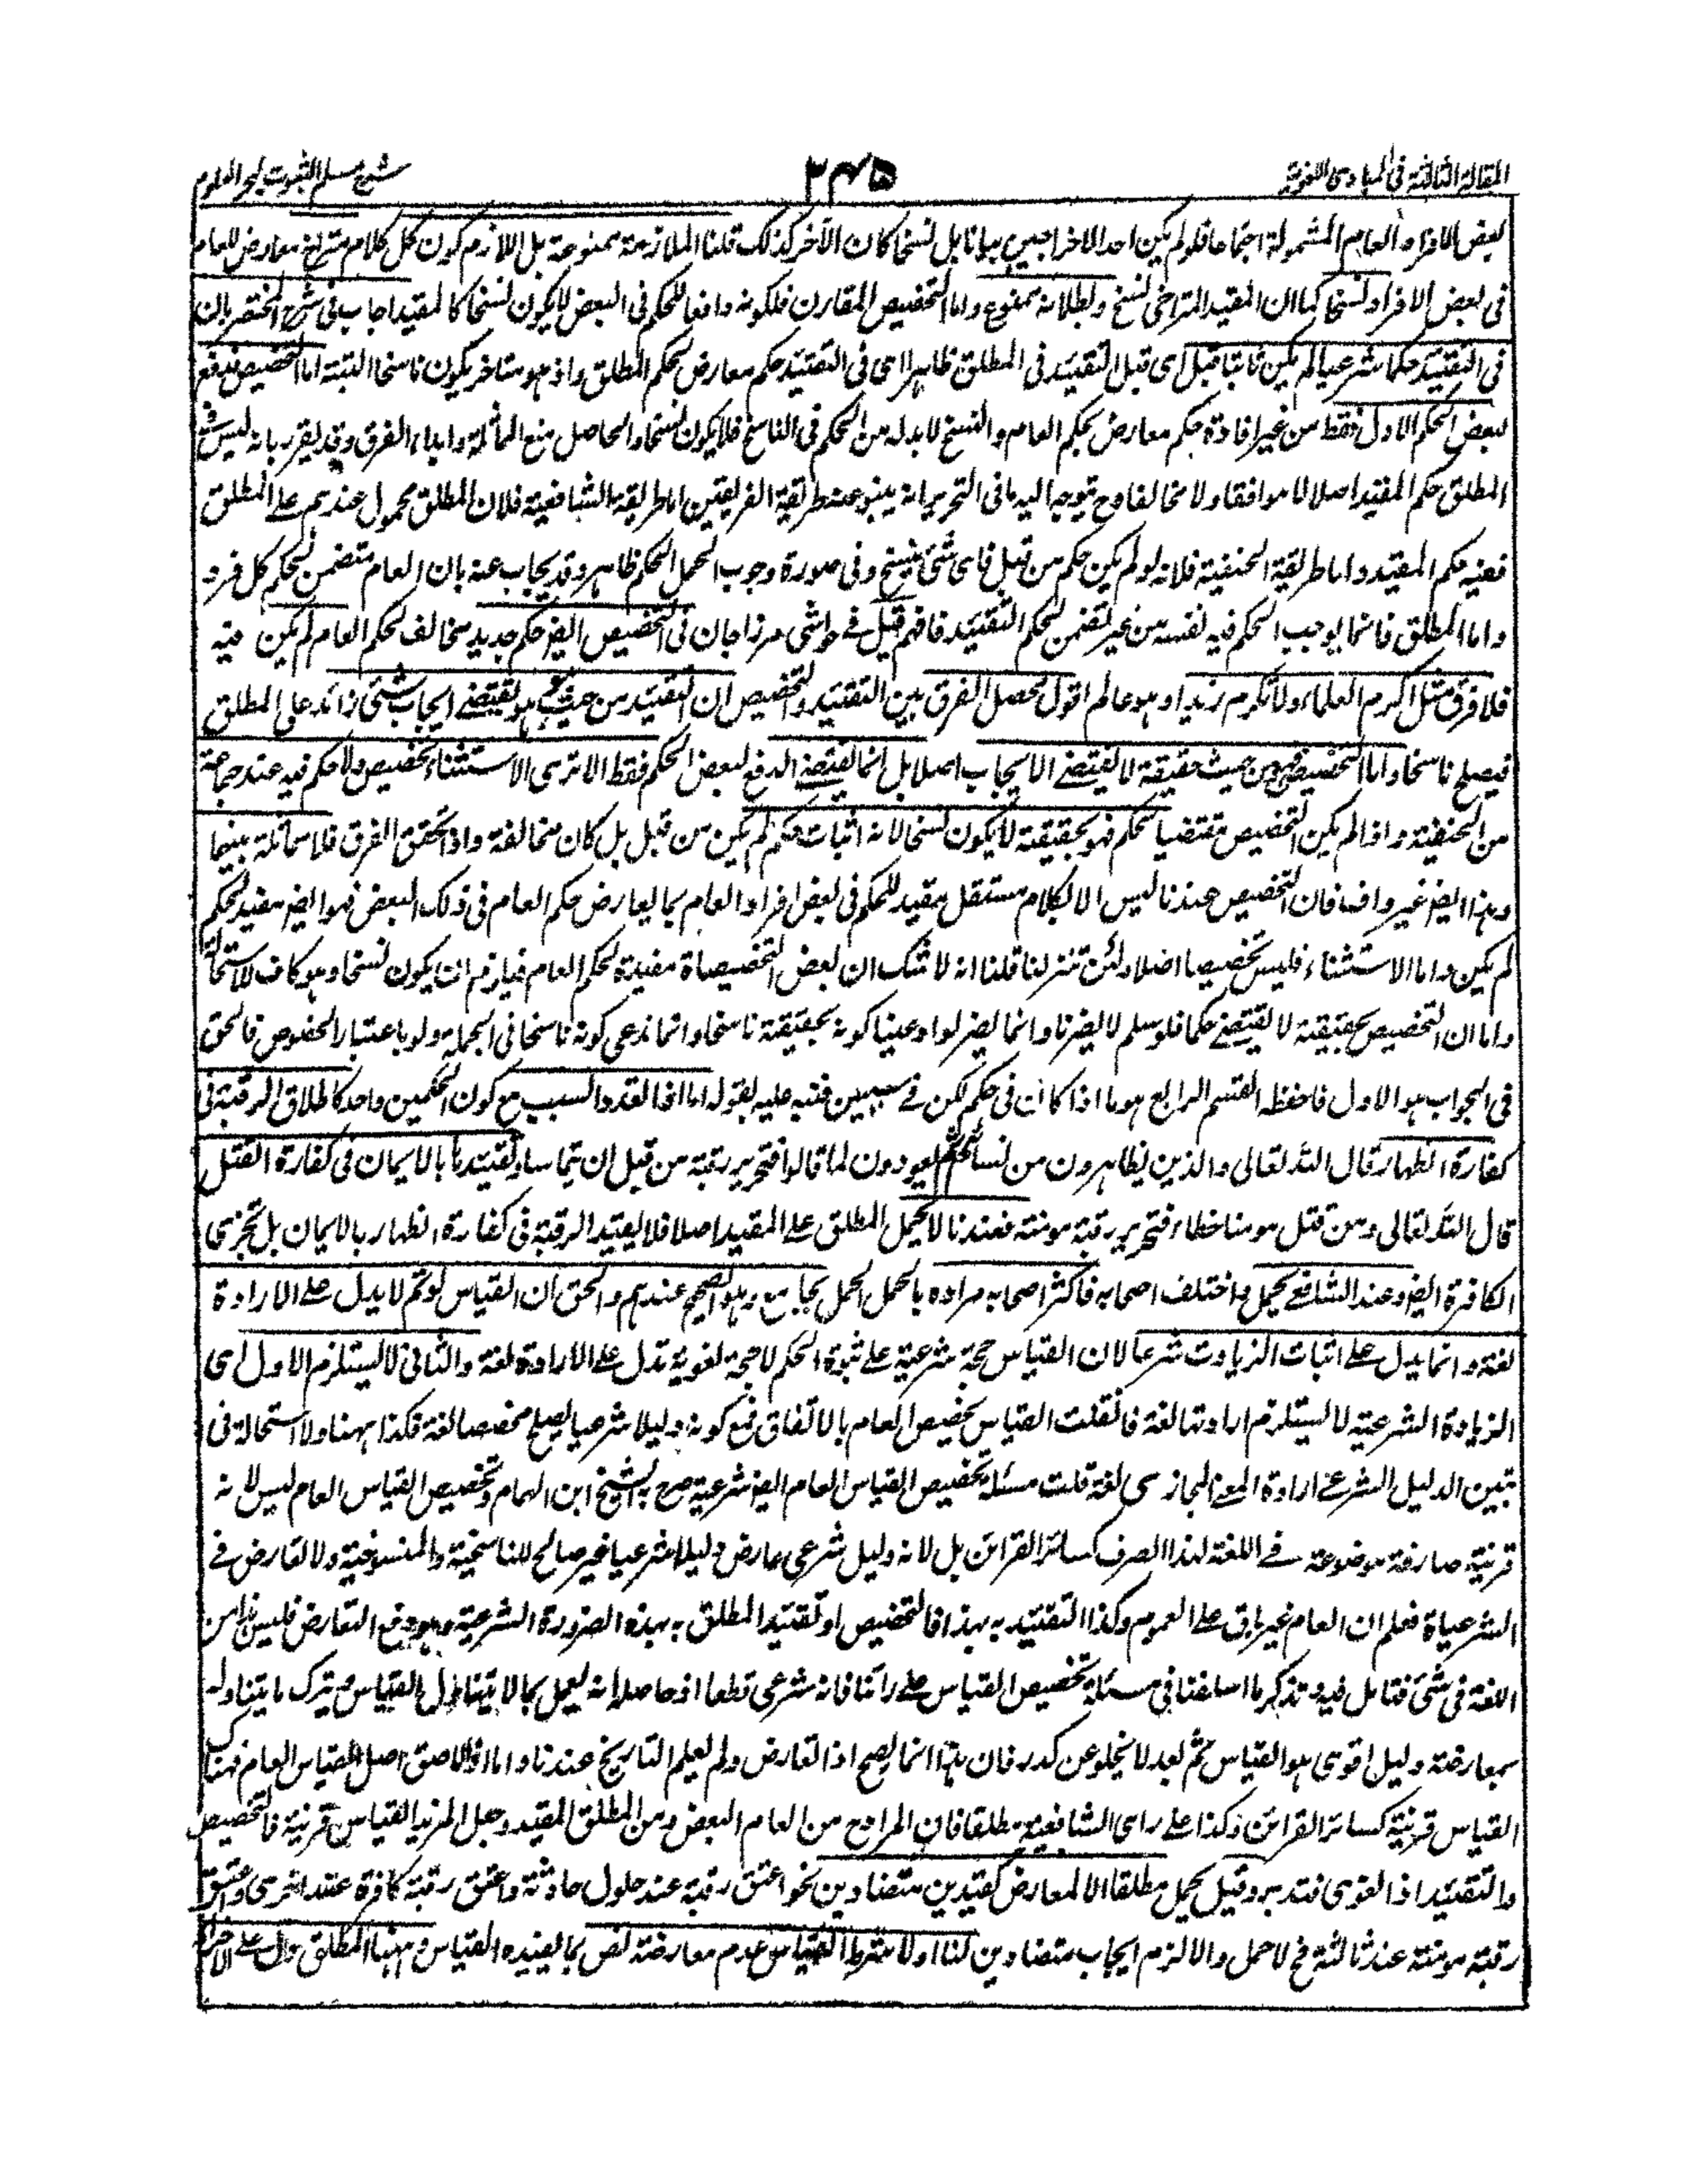 المقالة الثالثة في المبادى اللغوية
٣٤٥
شرح مسلم الثبوت لبحر العلوم
بعض الافراد العام المشمولة اجماعا فلو لم يكن احد الاخراجين بيانا بل نسخا كان الآخر كذلك قلنا الملازمة ممنوعة بل اللازم كون كل كلام متراخ معارض للعام
فى بعض الافراد نسخا كما ان المقيد المتراخى نسخ وبطلانه ممنوع واما التخصيص المقارن فلكونه دافعا للحكم فى البعض لا يكون نسخا كالمقيد اجاب فى شرح المختصر بان
فى التقييد حكما شرعيا لم يكن ثابتا قبل اى قبل التقييد فى المطلق ظاهرا اى فى التقييد حكم معارض لحكم المطلق واذ هو متاخر يكون ناسخا البتة اما التخصيص فدفع
لبعض الحكم الاول فقط من غير افادة حكم معارض بحكم العام والنسخ لا بد له من الحكم فى الناسخ فلا يكون نسخا والحاصل منع المماثلة وابداء الفرق وقد يقرر بانه ليس فى
المطلق حكم المقيد اصلا لا موافقا ولا مخالفا وح يتوجه اليه ما فى التحرير انه ينبو عنه طريقة الفريقين اما طريقة الشافعية فلان المطلق محمول عندهم على المطلق
فعنيه حكم المقيد واما طريقة الحنفية فلانه لو لم يكن حكم من قبل فاى شئ ينسخ وفى صورة وجوب الحمل الحكم ظاهر وقد يجاب عنه بان العام متضمن لحكم كل فرد
واما المطلق فانما يوجب الحكم فيه لنفسه من غير تضمن لحكم التقييد فافهم قيل فے حواشى مرزا جان فى التخصيص ايضا حكم جديد مخالف لحكم العام لم يكن فيه
فلا فرق مثل اكرم العلماء ولا تكرم زيدا وهو عالم اقول محصل الفرق بين التقييد والتخصيص ان التقييد من حيث هو يقتضے ايجاب شئ زائد على المطلق
فيصلح ناسخا واما التخصيص فهو من حيث حقيقة لا يقتضے الايجاب اصلا بل انما يقتضے الدفع لبعض الحكم فقط الا ترى الاستثناء تخصيص ولا حكم فيه عند جماعة
من الحنفية واذا لم يكن التخصيص مقتضيا لحكم فهو بحقيقته لا يكون نسخا لانه اثبات حكم لم يكن من قبل بل كان مخالفة واذا تحقق الفرق فلا مماثلة بينهما
وهذا ايضا غير واف فان التخصيص عندنا ليس الا لكلام مستقل مفيد للحكم فى بعض افراد العام بما يعارض حكم العام فى ذلك البعض فهو ايضا مفيد لحكم
لم يكن واما الاستثناء فليس تخصيصا اصلا ولئن تنزلنا قلنا انه لا شك ان بعض التخصيصاة مفيدة لحكم العام فيلزم ان يكون نسخا وهو كاف للاستحالة
واما ان التخصيص بحقيقته لا يقتضے حكما فلو سلم لا يضرنا وانما يضر لو ادعينا كونه بحقيقته ناسخا وانما ندعى كونه ناسخا فى الجملة ولو باعتبار الخصوص فالحق
فى الجواب هو الاول فاحفظه القسم الرابع هو ما اذا كانا فى حكم لكن فے سببين فنبه عليه بقوله اما اذا تعدد السبب مع كون الحكمين واحدا كاطلاق الرقبة فى
كفارة الظهار قال الله تعالى والذين يظاهرون من نسائهم ثم يعودون لما قالوا فتحرير رقبة من قبل ان يتماسا وتقييدها بالايمان فى كفارة القتل
قال الله تعالى ومن قتل مومنا خطاء فتحرير رقبة مومنة فعندنا لا يحمل المطلق على المقيد اصلا فلا يقيد الرقبة فى كفارة الظهار بالايمان بل تجزى
الكافرة ايضا وعند الشافعے يحمل واختلف اصحابه فاكثر اصحابه مراده بالحمل الحمل بجامع وهو الصحيح عندهم والحق ان القياس لو تم لا يدل على الارادة
لغة وانما يدل على اثبات الزيادت شرعا لان القياس حجة شرعية على ثبوة الحكم لا حجة لغوية تدل على الارادة لغة والثانى لا يستلزم الاول اى
الزيادة الشرعية لا يستلزم ارادتها لغة فان قلت القياس يخصص العام بالاتفاق فمع كونه دليلا شرعيا يصلح مخصصا لغة فكذا ههنا ولا استحالة فى
تبين الدليل الشرعے ارادة المعنے المجازى لغة قلت مسئلة تخصيص القياس العام ايضا شرعية صرح به الشيخ ابن الهمام وتخصيص القياس العام ليس لانه
قرينة صارفة موضوعة فے اللغة لهذا الصرف كسائر القرائن بل لانه دليل شرعى عارض دليلا شرعيا غير صالح للناسخية والمنسوخية ولا تعارض فے
الشرعياة فعلم ان العام غير باق على العموم وكذا التقييد به بهذا فالتخصيص او تقييد المطلق به بهذه الضرورة الشرعية وهو دفع التعارض فليس هذا من
اللغة فى شئ فتامل فيه وتذكر ما اسلفنا فى مسئلة تخصيص القياس على رأينا فانه شرعى قطعا اذ حاصله انه يعمل بما لا يتناول القياس ويترك ما يتناوله
بمعارضة دليل اقوى هو القياس ثم بعد لا يخلو عن كدر فان هذا انما يصح اذا تعارض ولم يعلم التاريخ عندنا واما اذا لاصق اصل القياس العام فهناك
القياس قرينة كسائر القرائن وكذا على راى الشافعية مطلقا فان المراد ح من العام البعض ومن المطلق المقيد وجعل المزيد القياس قرينة فالتخصيص
والتقييد اذا لغوى فتدبر وقيل يحمل مطلقا الا لمعارض كقيدين متضادين نحو اعتق رقبة عند حلول حادثة واعتق رقبة كافرة عند اخرى واعتق
رقبة مومنة عند ثالثة فح لا حمل والا لزم ايجاب متضادين لنا اولا شرط القياس عدم معارضة نص بما يفيده القياس وههنا المطلق دال على الاجزاء